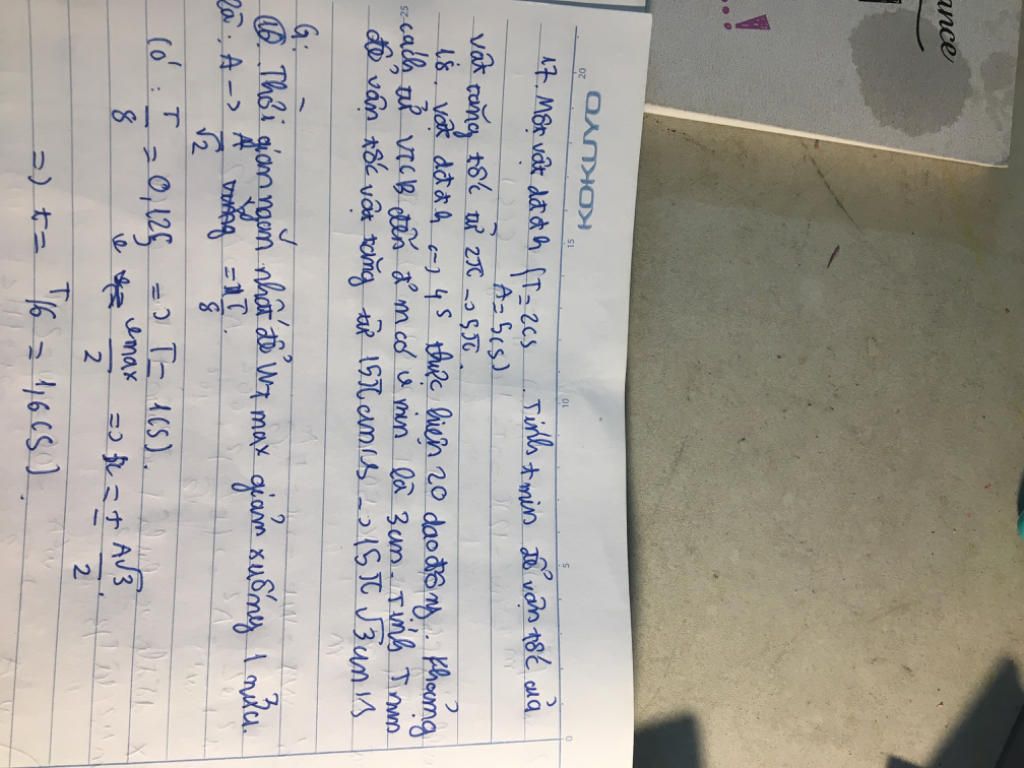 ance
..!
KOKUYO
20
15
10
5
0
25
17. Một vật dđđh (T=2(s) . Tính t min để vận tốc của
A=5(s)
vật tăng từ 2π -> 5π.
18. Vật dđđh -> 4s thực hiện 20 dao động. Khoảng
cách từ VTCB đến đ' m có v min là 3cm. Tính T min
để vận tốc vật tăng từ 15π cm/s -> 15π√3 cm/s
G.
16. Thời gian ngắn nhất để Wt max giảm xuống 1 nửa
là: A -> A/√2 = T/8
Có: T/8 = 0,125 => T = 1(s).
v = vmax/2 => x = ± A√3/2.
=> t = T/6 = 1,6(s).